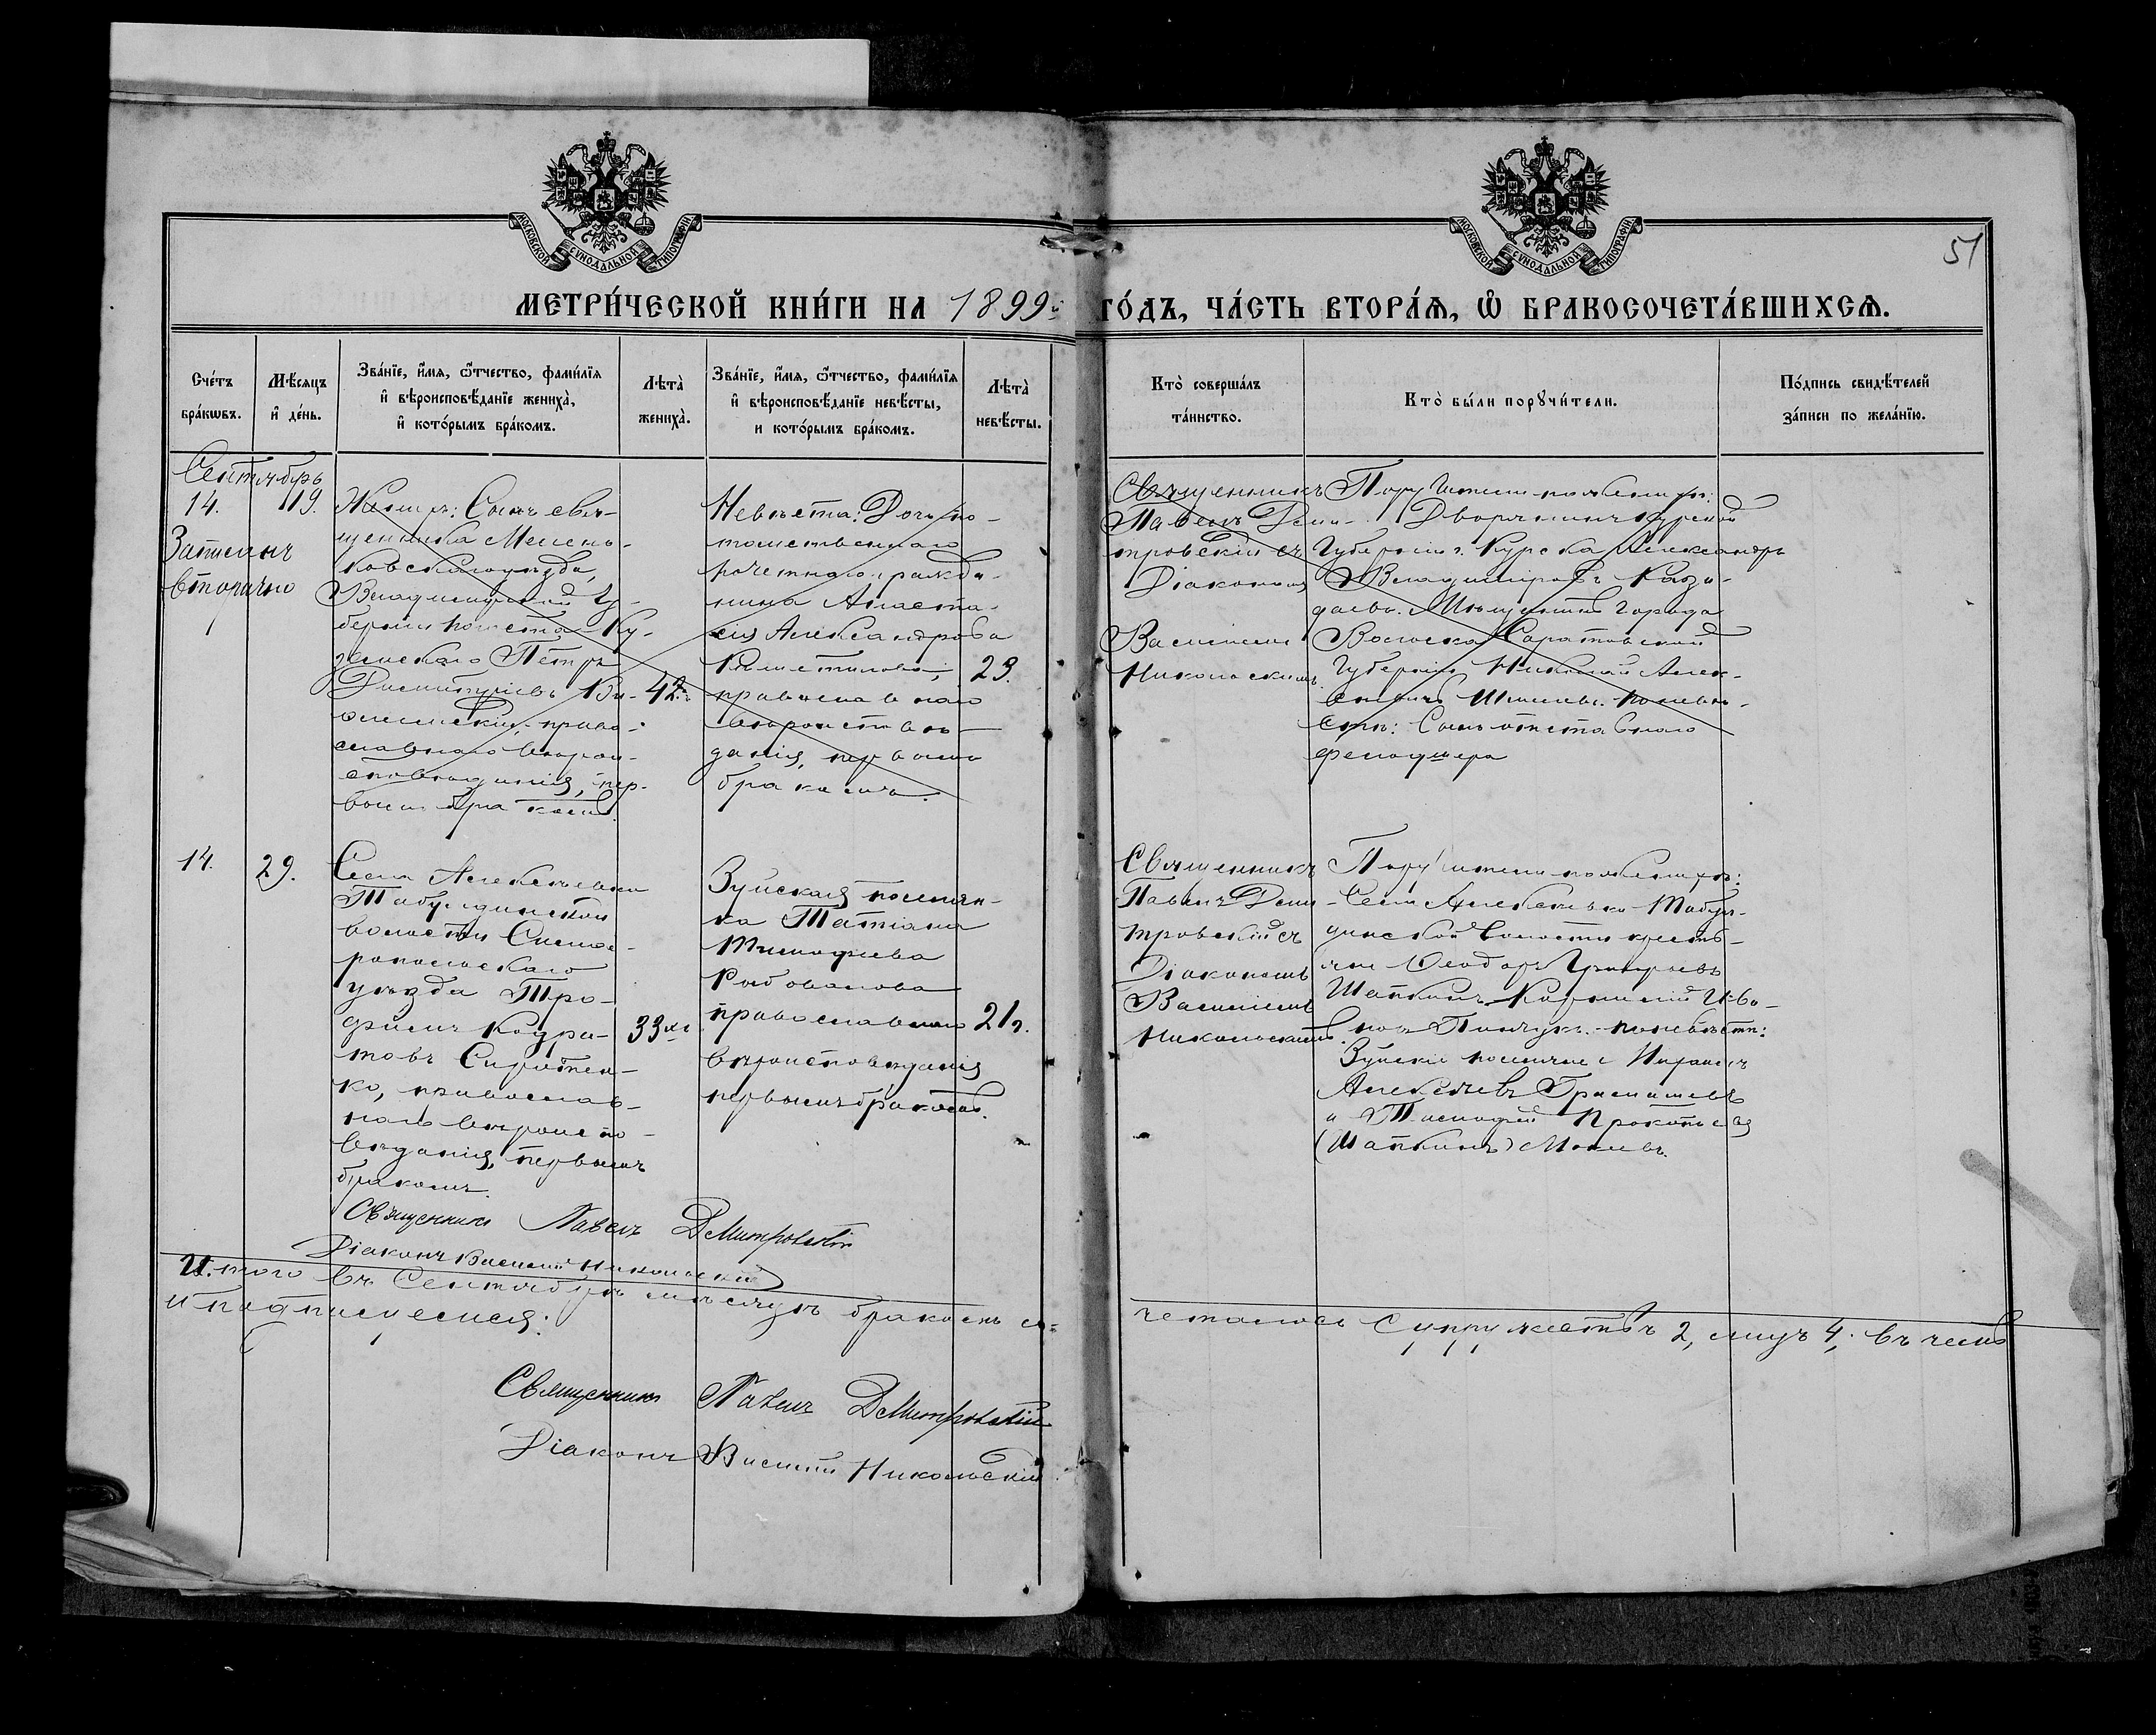 МОСКОВСКОЙ СѴНОДАЛЬНОЙ ТИПОГРАФІИ
МОСКОВСКОЙ СѴНОДАЛЬНОЙ ТИПОГРАФІИ
51
МЕТРИ́ЧЕСКОЙ КНИ́ГИ НА 1899й ГО́ДЪ, ЧА́СТЬ ВТОРА́Ѧ, Ѽ БРАКОСОЧЕТА́ВШИХСѦ.
Счéтъ
брáкѡвъ.
Мѣ́сѧцъ
и҆ дéнь.
Звáнїе, и҆́мѧ, ѻ҆́тчество, фамѝлїѧ
и҆ вѣроисповѣ́данїе женихà,
и҆ котóрымъ брáкомъ.
Лѣтà
женихà.
Звáнїе, и҆́мѧ, ѻ҆́тчество, фамѝлїѧ
и҆ вѣроисповѣ́данїе невѣ́сты,
и котóрымъ брáкомъ.
Лѣтà
невѣ́сты.
Ктò совершáлъ
тáинство.
Ктò бы́ли порꙋчи́тели.
Пóдпись свидѣ́телей
зáписи по желáнїю.
Сентябрь
14.
19.
Записанъ
вторично
Женихъ: Сынъ свя-
щенника Мелен-
ковскаго уѣзда,
Владимирской Гу-
берніи
Петръ
Дмитріевъ
право-
славнаго вѣрои-
сповѣданія, пер-
вымъ бракомъ.
42
Невѣста: Дочь по-
томственнаго
почетнаго гражда-
нина Анаста-
сія Александрова
православнаго
вѣроисповѣ-
данія, первымъ
бракомъ.
23.
Священникъ
Павелъ Дми-
тровскій съ
Діакономъ
Василіемъ
Никольскимъ.
Поручители по женихѣ:
Дворянинъ Курской
Губерніи г. Курска Александръ
Владиміровъ
Мѣщанинъ города
Вольска Саратовской
Губерніи Николай Алек-
по невѣ-
стѣ: Сынъ отставнаго
фельдшера
14.
29.
Села Алексѣевки
Табулдинской
волости Симфе-
ропольскаго
уѣзда Тро-
фимъ Кодра-
товъ Сиротен-
ко, православ-
наго вѣроиспо-
вѣданія, первымъ
бракомъ.
33
Зуйская поселян-
ка Татіана
Тимофіева
православнаго
вѣроисповѣданія
первымъ бракомъ.
21
Священникъ
Павелъ Дми-
тровскій съ
Діакономъ
Василіемъ
Никольскимъ.
Поручители по женихѣ:
Села Алексѣевки Табул-
динской волости кресть-
яне Ѳеодоръ Григорьевъ
Шапкинъ
по невѣстѣ:
Зуйскіе поселяне
Алексѣевъ
и Тимофей Прокопьевъ
(Шапкинъ)
Священникъ Павелъ Дмитровскій
Діаконъ Василій Никольскій
Итого въ Сентябрѣ мѣсяцѣ бракомъ со-
четалось супружествъ 2, лицъ 4; въ чемъ
и подписуемся:
Священникъ Павелъ Дмитровскій
Діаконъ Василій Никольскій.